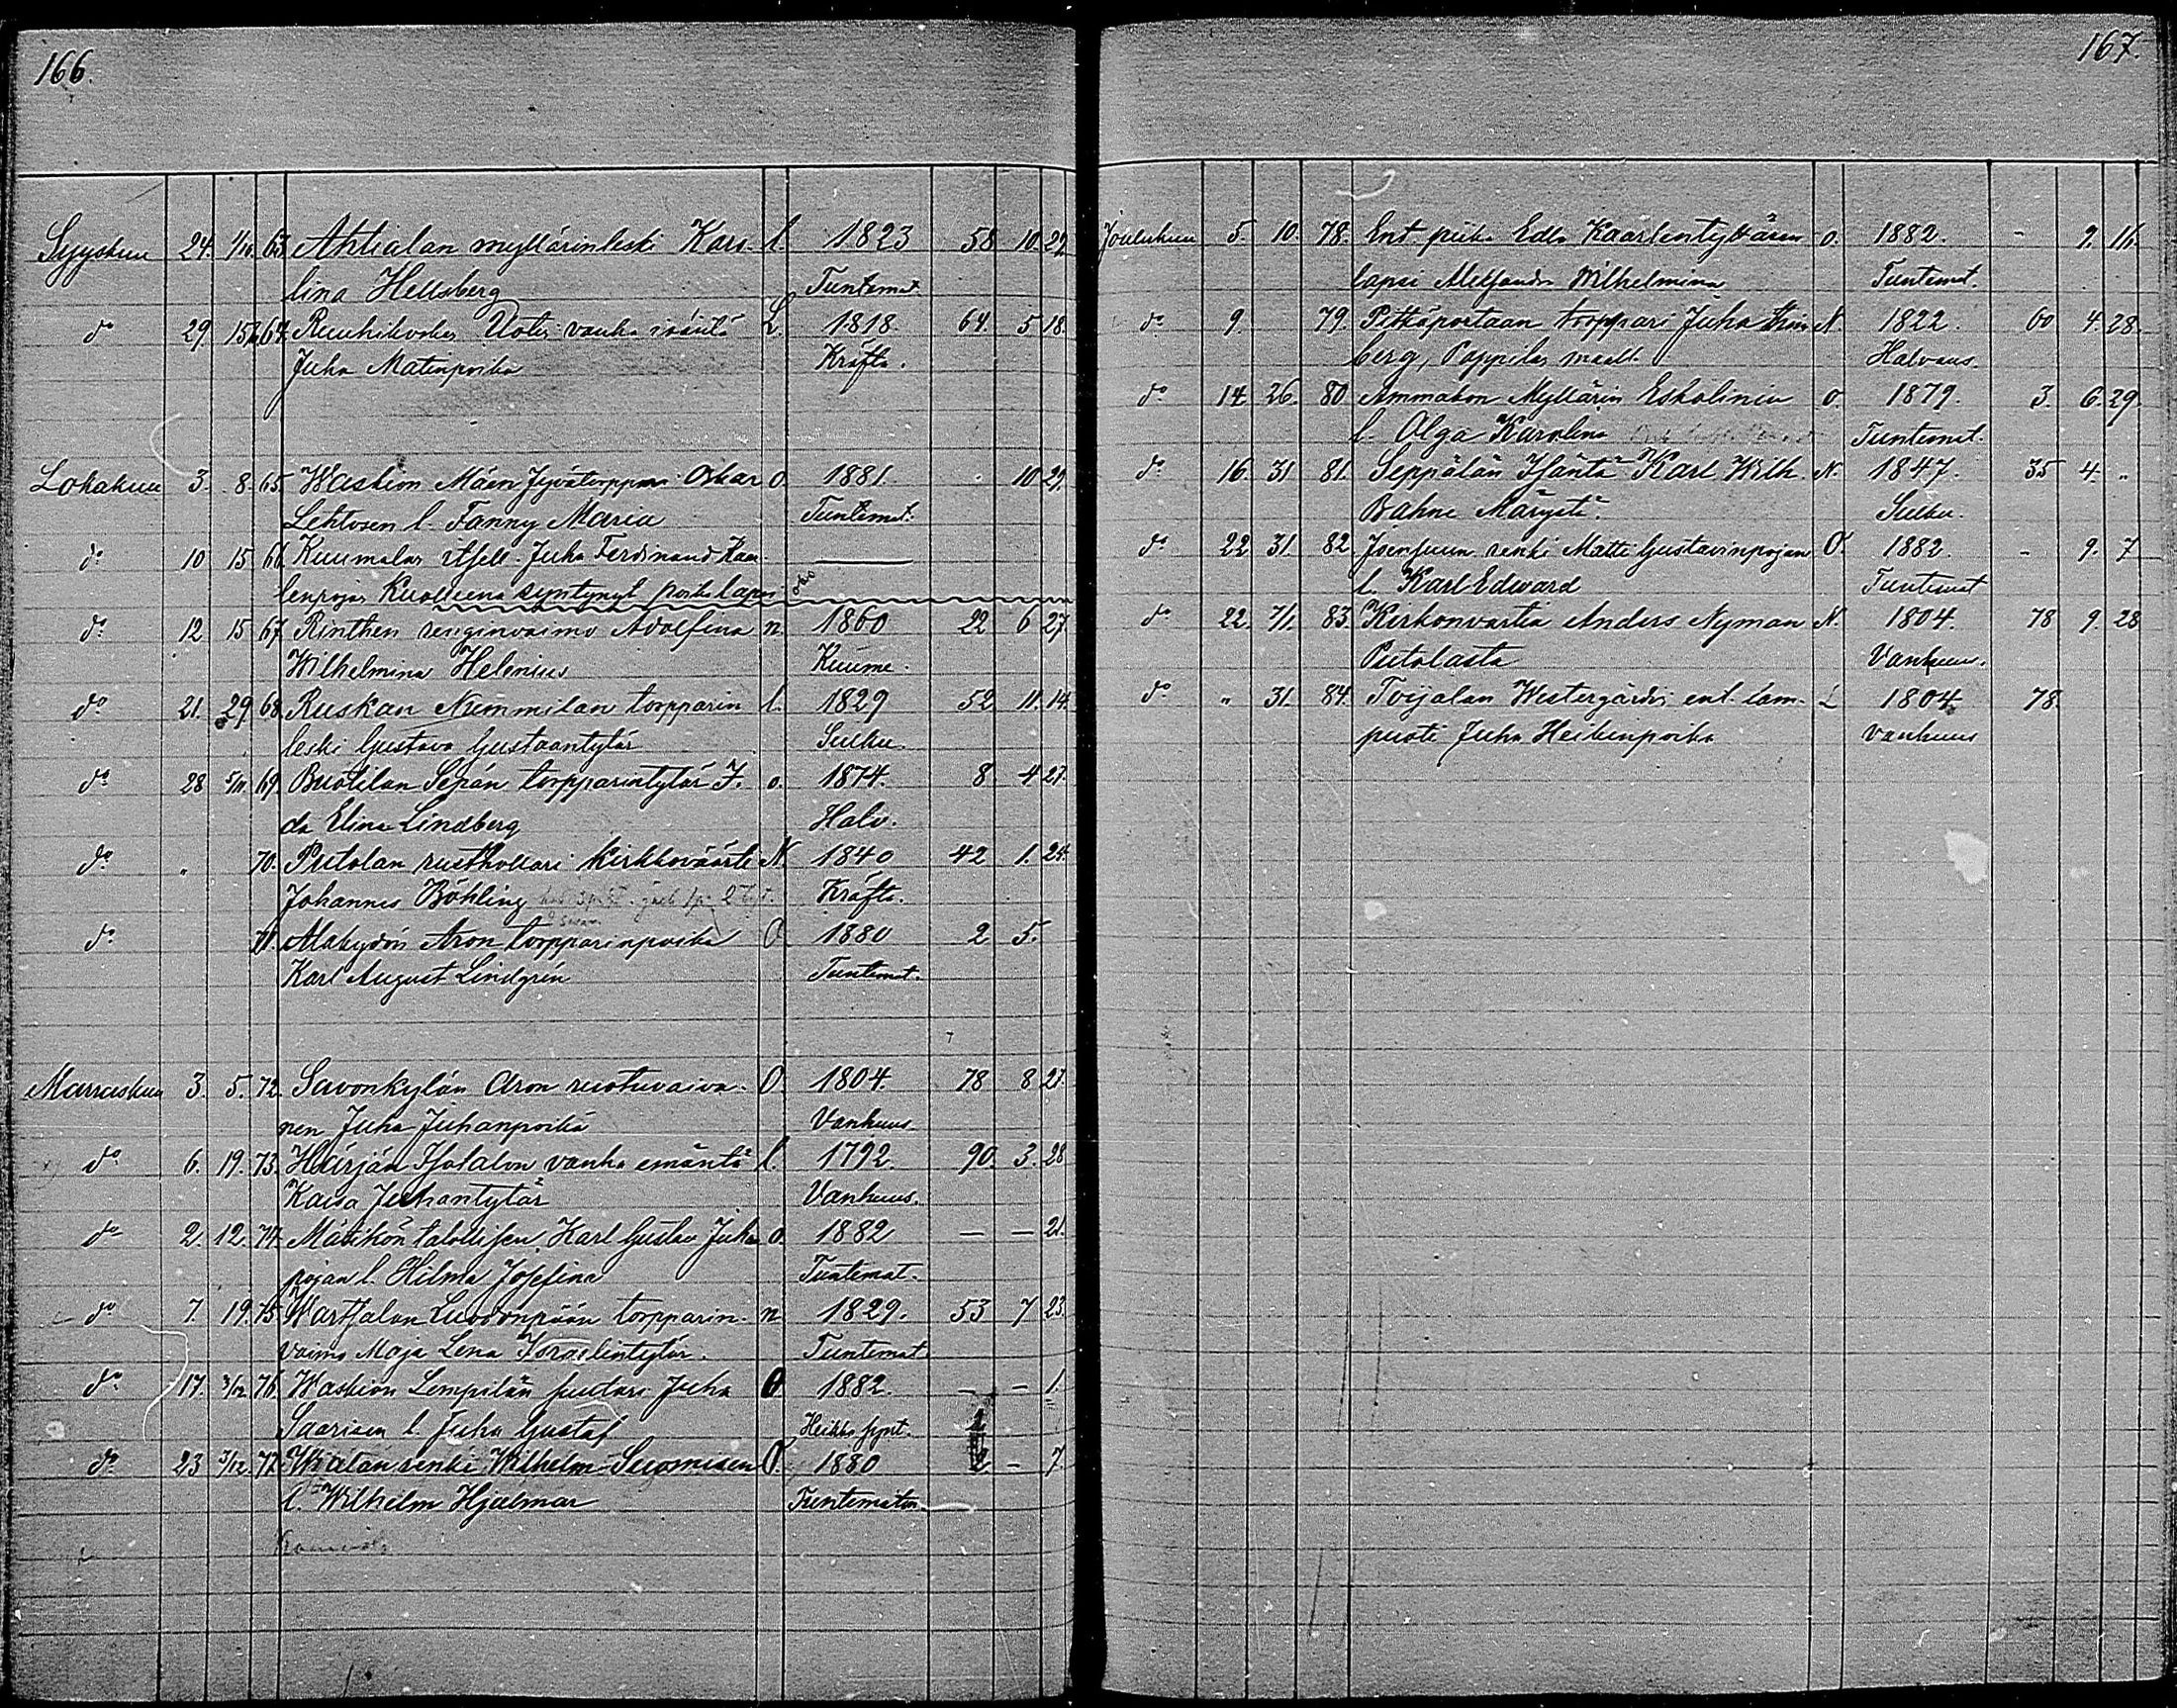 166.
Syyskuu 24. 1/10. 63. Ahlialan myllärinleski Karo- l. 1823 58 10. 29.
lina Hellsberg Tuntemat.
do 29. 15/10. 64. Ruuhikosken Uoti vanha isäntä L. 1818. 64. 5 18.
Juha Matinpoika Kräfta.
Lokakuu 3. 8. 65. Waskion Mäen Jyvätorppari Oskar o. 1881. - 10 29.
Lehtosen l. Fanny Maria Tuntemat.
do 10 15 66. Kuumalan itsell. Juha Ferdinand Kaa-
lenpojan Kuolleena syntynyt poika lapsi
do 12 15 67. Rinthen renginvaimo Adolfina n. 1860 22 6 27.
Wilhelmina Helenius Kuume.
do 21. 29 68. Ruskan Nummilan torpparin l. 1829 52 11. 14.
leski Gustava Gustaantytär Sulku.
do 28 5/11 69. Puolilan Sepän torpparintytär I- o. 1874. 8 4 27.
da Elina Lindberg Halv.
do " 70. Putolan rusthollari kirkkoväärti N. 1840 42 1. 24.
Johannes Böhling Kräfta.
do 71. Alakydön Aron torpparinpoika O 1880 2 5.
Karl August Lindgrén Tuntemat.
Marraskuu 3. 5. 72. Savonkylän Aron ruotuvaiva- O. 1804. 78 8 27.
nen Juha Juhanpoika Vanhuus.
do 6. 19. 73. Häirjän Isotalon vanha emäntä l. 1792. 90. 3. 28
Kaisa Juhantytär Vanhuus.
do 2. 12. 74. Märikön talollisen Karl Gustav Juha o. 1882 — — 21.
pojan l. Hilma Josefina Tuntemat.
do 7. 19. 75. Wartsalan Luodonpään torpparin- n. 1829. 53 7 23.
vaimo Maja Lena Israelintytär. Tuntemat.
do 17. 3/12. 76. Waskion Lempilän suutari Juha O 1882. — — 1.
Saarisen l. Juha Gustaf Heikko synt.
do 23 3/12. 77. renki Wilhelm Suomisen O. 1880 2 — 7.
l. Wilhelm Hjalmar Tuntematon.
167.
Joulukuu 5. 10. 78. Ent piika Edla Kaarlentyttären o. 1882. - 9. 16.
lapsi Aleksandra Wilhelmina Tuntemat.
do 9 79. Pitkäportaan torppari Juha N. 1822. 60 4. 28.
berg, Pappilan maalt. Halvaus.
do 14. 26. 80 Ammakon Myllärin Eskolinin o. 1879. 3. 6. 29.
l. Olga Karolina Tuntemat.
do 16. 31 81. Seppälän Isäntä Karl Wilh. N. 1847. 35 4. "
Bahne Märystä. Sulku.
do 22 31. 82. Joensuun renki Matti Gustavinpojan O. 1882. - 9. 7
l. Karl Edward Tuntemat
do 22. 7/1. 83. Kirkonvartia Anders Nyman N. 1804. 78 9. 28
Putolasta Vanhuus.
do " 31. 84. Toijalan Westergårdin ent. lam- L 1804. 78.
puoti Juha Heikinpoika vanhuus